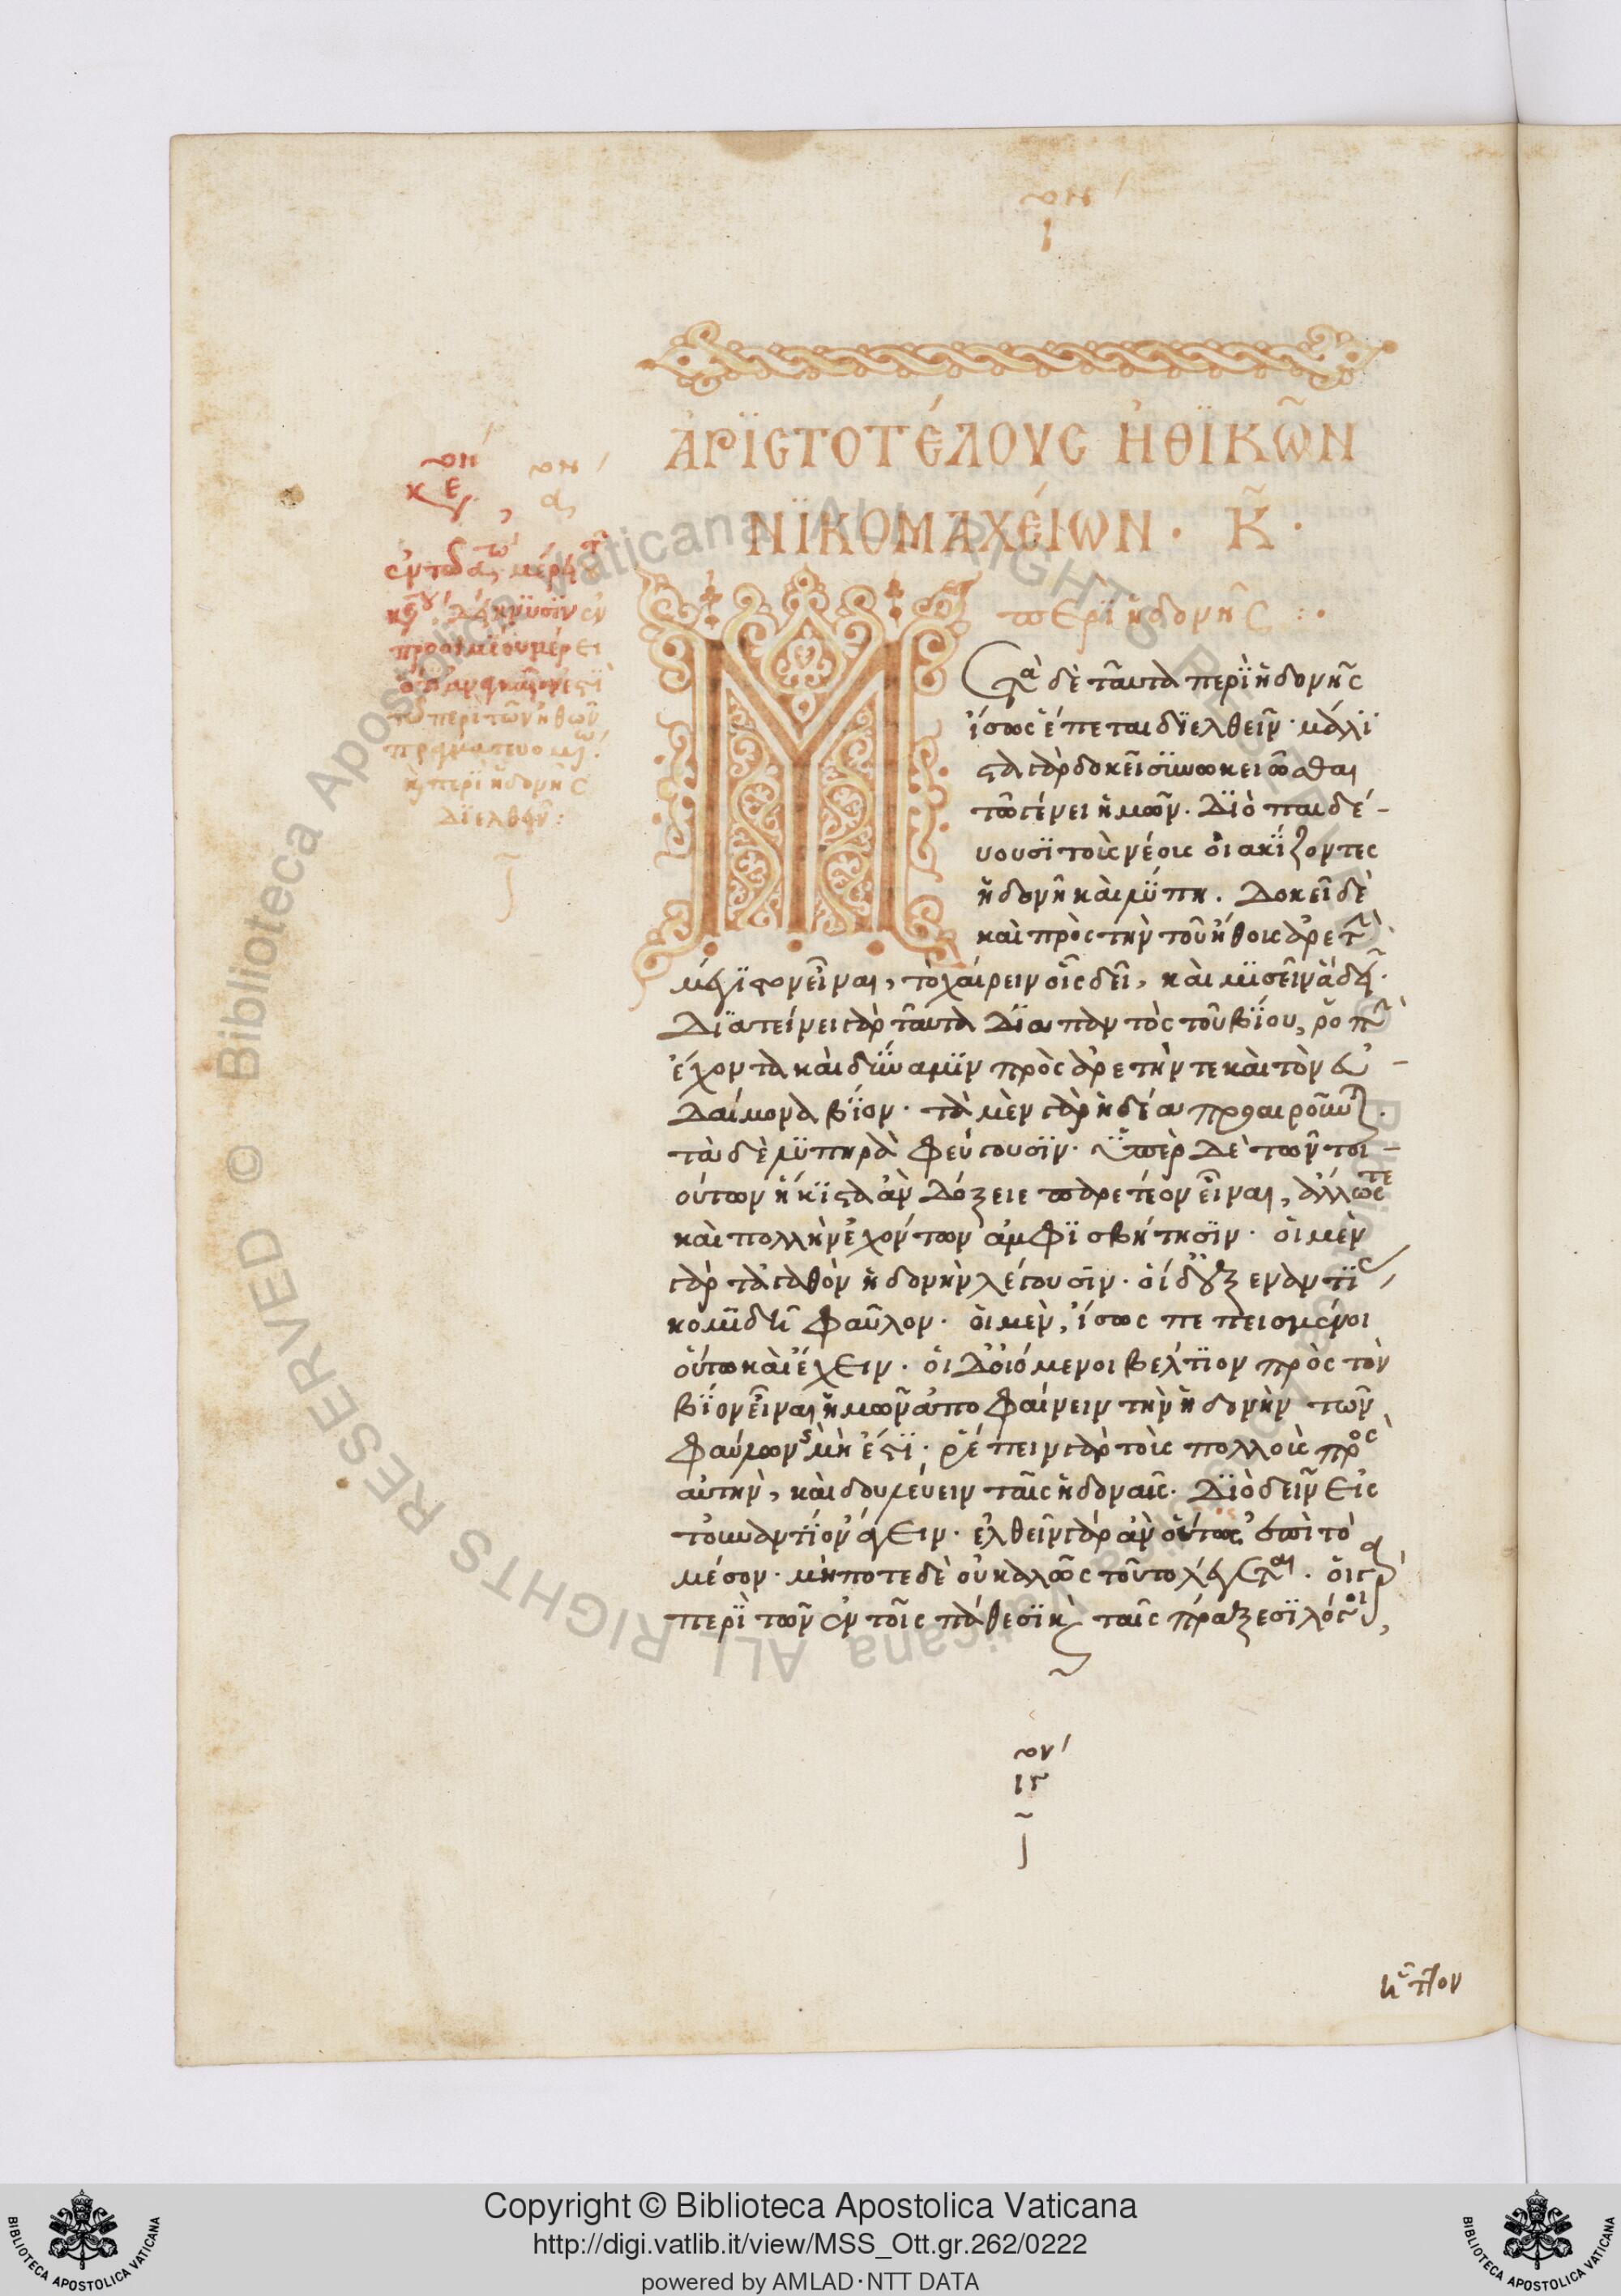 ἈΡΪΣΤΟΤΈΛΟΥΣ ἨΘΪΚΩ͂Ν
ΝΪΚΟΜΑΧΕΊΩΝ · Κ ·
περὶ ἡδονῆς :·
Μετὰ δὲ ταῦτα περὶ ἡδονῆς
ἴσως ἕπεται διελθεῖν · μάλι
στα γὰρ δοκεῖ συνωκειῶσθαι
τῶ γένει ἡμῶν · Διὸ παιδέ-
υουσι τοὺς νέους οἰακίζοντες
ἡδονῆ καὶ λύπη . Δοκεῖ δὲ
καὶ πρὸς τὴν τοῦ ἤθους ἀρετὴν
μέγιστον εἶναι, τὸ χαίρειν οἷς δεῖ, καὶ μισεῖν ἃ δεῖ ·
Διατείνει γὰρ ταῦτα διαπαντὸς τοῦ βίου, ῥοπὴν
ἔχοντα καὶ δύναμιν πρὸς ἀρετήν τε καὶ τὸν εὐ-
δαίμονα βίον · τὰ μὲν γὰρ ἡδέα προαιροῦνται.
τὰ δὲ λυπηρὰ φεύγουσιν · Ὑπὲρ δὲ τῶν τοι-
ούτων ἥκιστα ἂν δόξειε παρετέον εἶναι, ἄλλως τε
καὶ πολλὴν ἐχόντων ἀμφισβήτησιν · οἱ μὲν
γὰρ τἀγαθὸν ἡδονὴν λέγουσιν · οἱ δ' ἐξ εναντίας
κομιδῆ φαῦλον · οἱ μὲν, ἴσως πεπεισμένοι
οὕτω καὶ ἔχειν · οἱ δ' οἰόμενοι βέλτιον πρὸς τὸν
βίον εἶναι ἡμῶν ἀποφαίνειν τὴν ἡδονὴν τῶν
φαύλων μὴ ἐστὶ · ῥέπειν γὰρ τοὺς πολλοὺς πρὸς
αὐτὴν, καὶ δουλεύειν ταῖς ἡδοναῖς · Διὸ δεῖν εἰς
τοὐναντίον ἄγειν · ἐλθεῖν γὰρ ἂν οὕτως ἐπὶ τὸ
μέσον · μή ποτε δὲ οὐ καλῶς τοῦτο λέγεται · οἱ γὰρ
περὶ τῶν ἐν τοῖς πάθεσι καὶ ταῖς πράξεσι λόγοι,
Copyright © Biblioteca Apostolica Vaticana
http://digi.vatlib.it/view/MSS_Ott.gr.262/0222
powered by AMLAD·NTT DATA
BIBLIOTECA APOSTOLICA VATICANA
BIBLIOTECA APOSTOLICA VATICANA